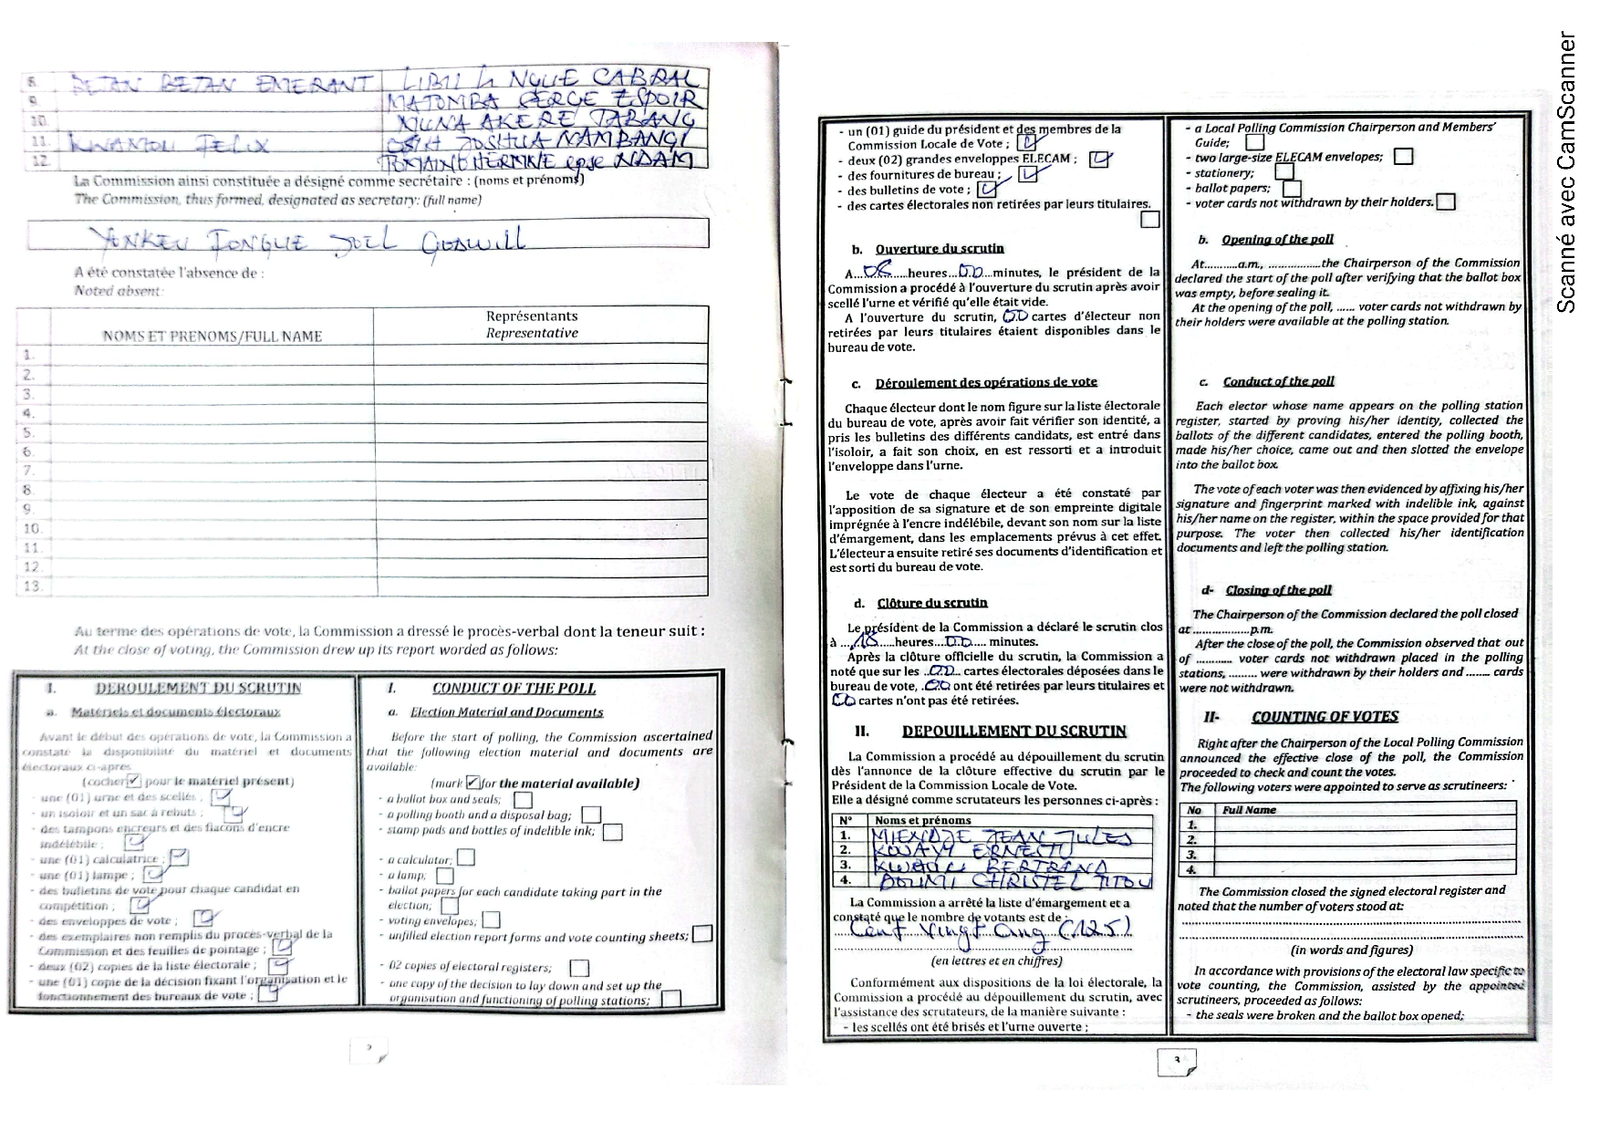 8. BETAN BETAN EMERANT LIBII Li NGUE CABRAL
9. MATOMBA SERGE ESPOIR
10. MUNA AKERE TABANG
11. KWAMOU FELIX OSIH JOSHUA NAMBANGI
12. TOMAINO HERMINE epse NDAM
La Commission ainsi constituée a désigné comme secrétaire : (noms et prénoms)
The Commission, thus formed, designated as secretary: (full name)
YANKEU FONGUE JOEL GODWILL
A été constatée l'absence de :
Noted absent:
NOMS ET PRENOMS/FULL NAME
Représentants
Representative
1.
2.
3.
4.
5.
6.
7.
8.
9.
10.
11.
12.
13.
Au terme des opérations de vote, la Commission a dressé le procès-verbal dont la teneur suit :
At the close of voting, the Commission drew up its report worded as follows:
I. DEROULEMENT DU SCRUTIN
a. Matériels et documents électoraux
Avant le début des opérations de vote, la Commission a
constaté la disponibilité du matériel et documents
électoraux ci-après
(cocher ✓ pour le matériel présent)
- une (01) urne et des scellés ;
- un isoloir et un sac à rebuts ;
- des tampons encreurs et des flacons d'encre
indélébile ;
- une (01) calculatrice ;
- une (01) lampe ;
- des bulletins de vote pour chaque candidat en
compétition ;
- des enveloppes de vote ;
- des exemplaires non remplis du procès-verbal de la
Commission et des feuilles de pointage ;
- deux (02) copies de la liste électorale ;
- une (01) copie de la décision fixant l'organisation et le
fonctionnement des bureaux de vote ;
I. CONDUCT OF THE POLL
a. Election Material and Documents
Before the start of polling, the Commission ascertained
that the following election material and documents are
available:
(mark ✓ for the material available)
- a ballot box and seals;
- a polling booth and a disposal bag;
- stamp pads and bottles of indelible ink;
- a calculator;
- a lamp;
- ballot papers for each candidate taking part in the
election;
- voting envelopes;
- unfilled election report forms and vote counting sheets;
- 02 copies of electoral registers;
- one copy of the decision to lay down and set up the
organisation and functioning of polling stations;
2
- un (01) guide du président et des membres de la
Commission Locale de Vote ;
- deux (02) grandes enveloppes ELECAM ;
- des fournitures de bureau ;
- des bulletins de vote ;
- des cartes électorales non retirées par leurs titulaires.
b. Ouverture du scrutin
A...08......heures...00...minutes, le président de la
Commission a procédé à l'ouverture du scrutin après avoir
scellé l'urne et vérifié qu'elle était vide.
A l'ouverture du scrutin, 00 cartes d'électeur non
retirées par leurs titulaires étaient disponibles dans le
bureau de vote.
c. Déroulement des opérations de vote
Chaque électeur dont le nom figure sur la liste électorale
du bureau de vote, après avoir fait vérifier son identité, a
pris les bulletins des différents candidats, est entré dans
l'isoloir, a fait son choix, en est ressorti et a introduit
l'enveloppe dans l'urne.
Le vote de chaque électeur a été constaté par
l'apposition de sa signature et de son empreinte digitale
imprégnée à l'encre indélébile, devant son nom sur la liste
d'émargement, dans les emplacements prévus à cet effet.
L'électeur a ensuite retiré ses documents d'identification et
est sorti du bureau de vote.
d. Clôture du scrutin
Le président de la Commission a déclaré le scrutin clos
à ...18....heures...00.... minutes.
Après la clôture officielle du scrutin, la Commission a
noté que sur les ..00... cartes électorales déposées dans le
bureau de vote, .00 ont été retirées par leurs titulaires et
00 cartes n'ont pas été retirées.
II. DEPOUILLEMENT DU SCRUTIN
La Commission a procédé au dépouillement du scrutin
dès l'annonce de la clôture effective du scrutin par le
Président de la Commission Locale de Vote.
Elle a désigné comme scrutateurs les personnes ci-après :
N° Noms et prénoms
1. MIENDJE JEAN JULES
2. KOUAM ERNEST
3. KWAOU BERTRAND
4. DOUMI CHRISTEL TITOU
La Commission a arrêté la liste d'émargement et a
constaté que le nombre de votants est de :
Cent vingt cinq (125)
(en lettres et en chiffres)
Conformément aux dispositions de la loi électorale, la
Commission a procédé au dépouillement du scrutin, avec
l'assistance des scrutateurs, de la manière suivante :
- les scellés ont été brisés et l'urne ouverte ;
- a Local Polling Commission Chairperson and Members'
Guide;
- two large-size ELECAM envelopes;
- stationery;
- ballot papers;
- voter cards not withdrawn by their holders.
b. Opening of the poll
At..........a.m, ................the Chairperson of the Commission
declared the start of the poll after verifying that the ballot box
was empty, before sealing it.
At the opening of the poll, ...... voter cards not withdrawn by
their holders were available at the polling station.
c. Conduct of the poll
Each elector whose name appears on the polling station
register, started by proving his/her identity, collected the
ballots of the different candidates, entered the polling booth,
made his/her choice, came out and then slotted the envelope
into the ballot box.
The vote of each voter was then evidenced by affixing his/her
signature and fingerprint marked with indelible ink, against
his/her name on the register, within the space provided for that
purpose. The voter then collected his/her identification
documents and left the polling station.
d- Closing of the poll
The Chairperson of the Commission declared the poll closed
at ..................p.m.
After the close of the poll, the Commission observed that out
of ............ voter cards not withdrawn placed in the polling
stations, ......... were withdrawn by their holders and ........ cards
were not withdrawn.
II- COUNTING OF VOTES
Right after the Chairperson of the Local Polling Commission
announced the effective close of the poll, the Commission
proceeded to check and count the votes.
The following voters were appointed to serve as scrutineers:
No Full Name
1.
2.
3.
4.
The Commission closed the signed electoral register and
noted that the number of voters stood at:
(in words and figures)
In accordance with provisions of the electoral law specific to
vote counting, the Commission, assisted by the appointed
scrutineers, proceeded as follows:
- the seals were broken and the ballot box opened;
3
Scanné avec CamScanner